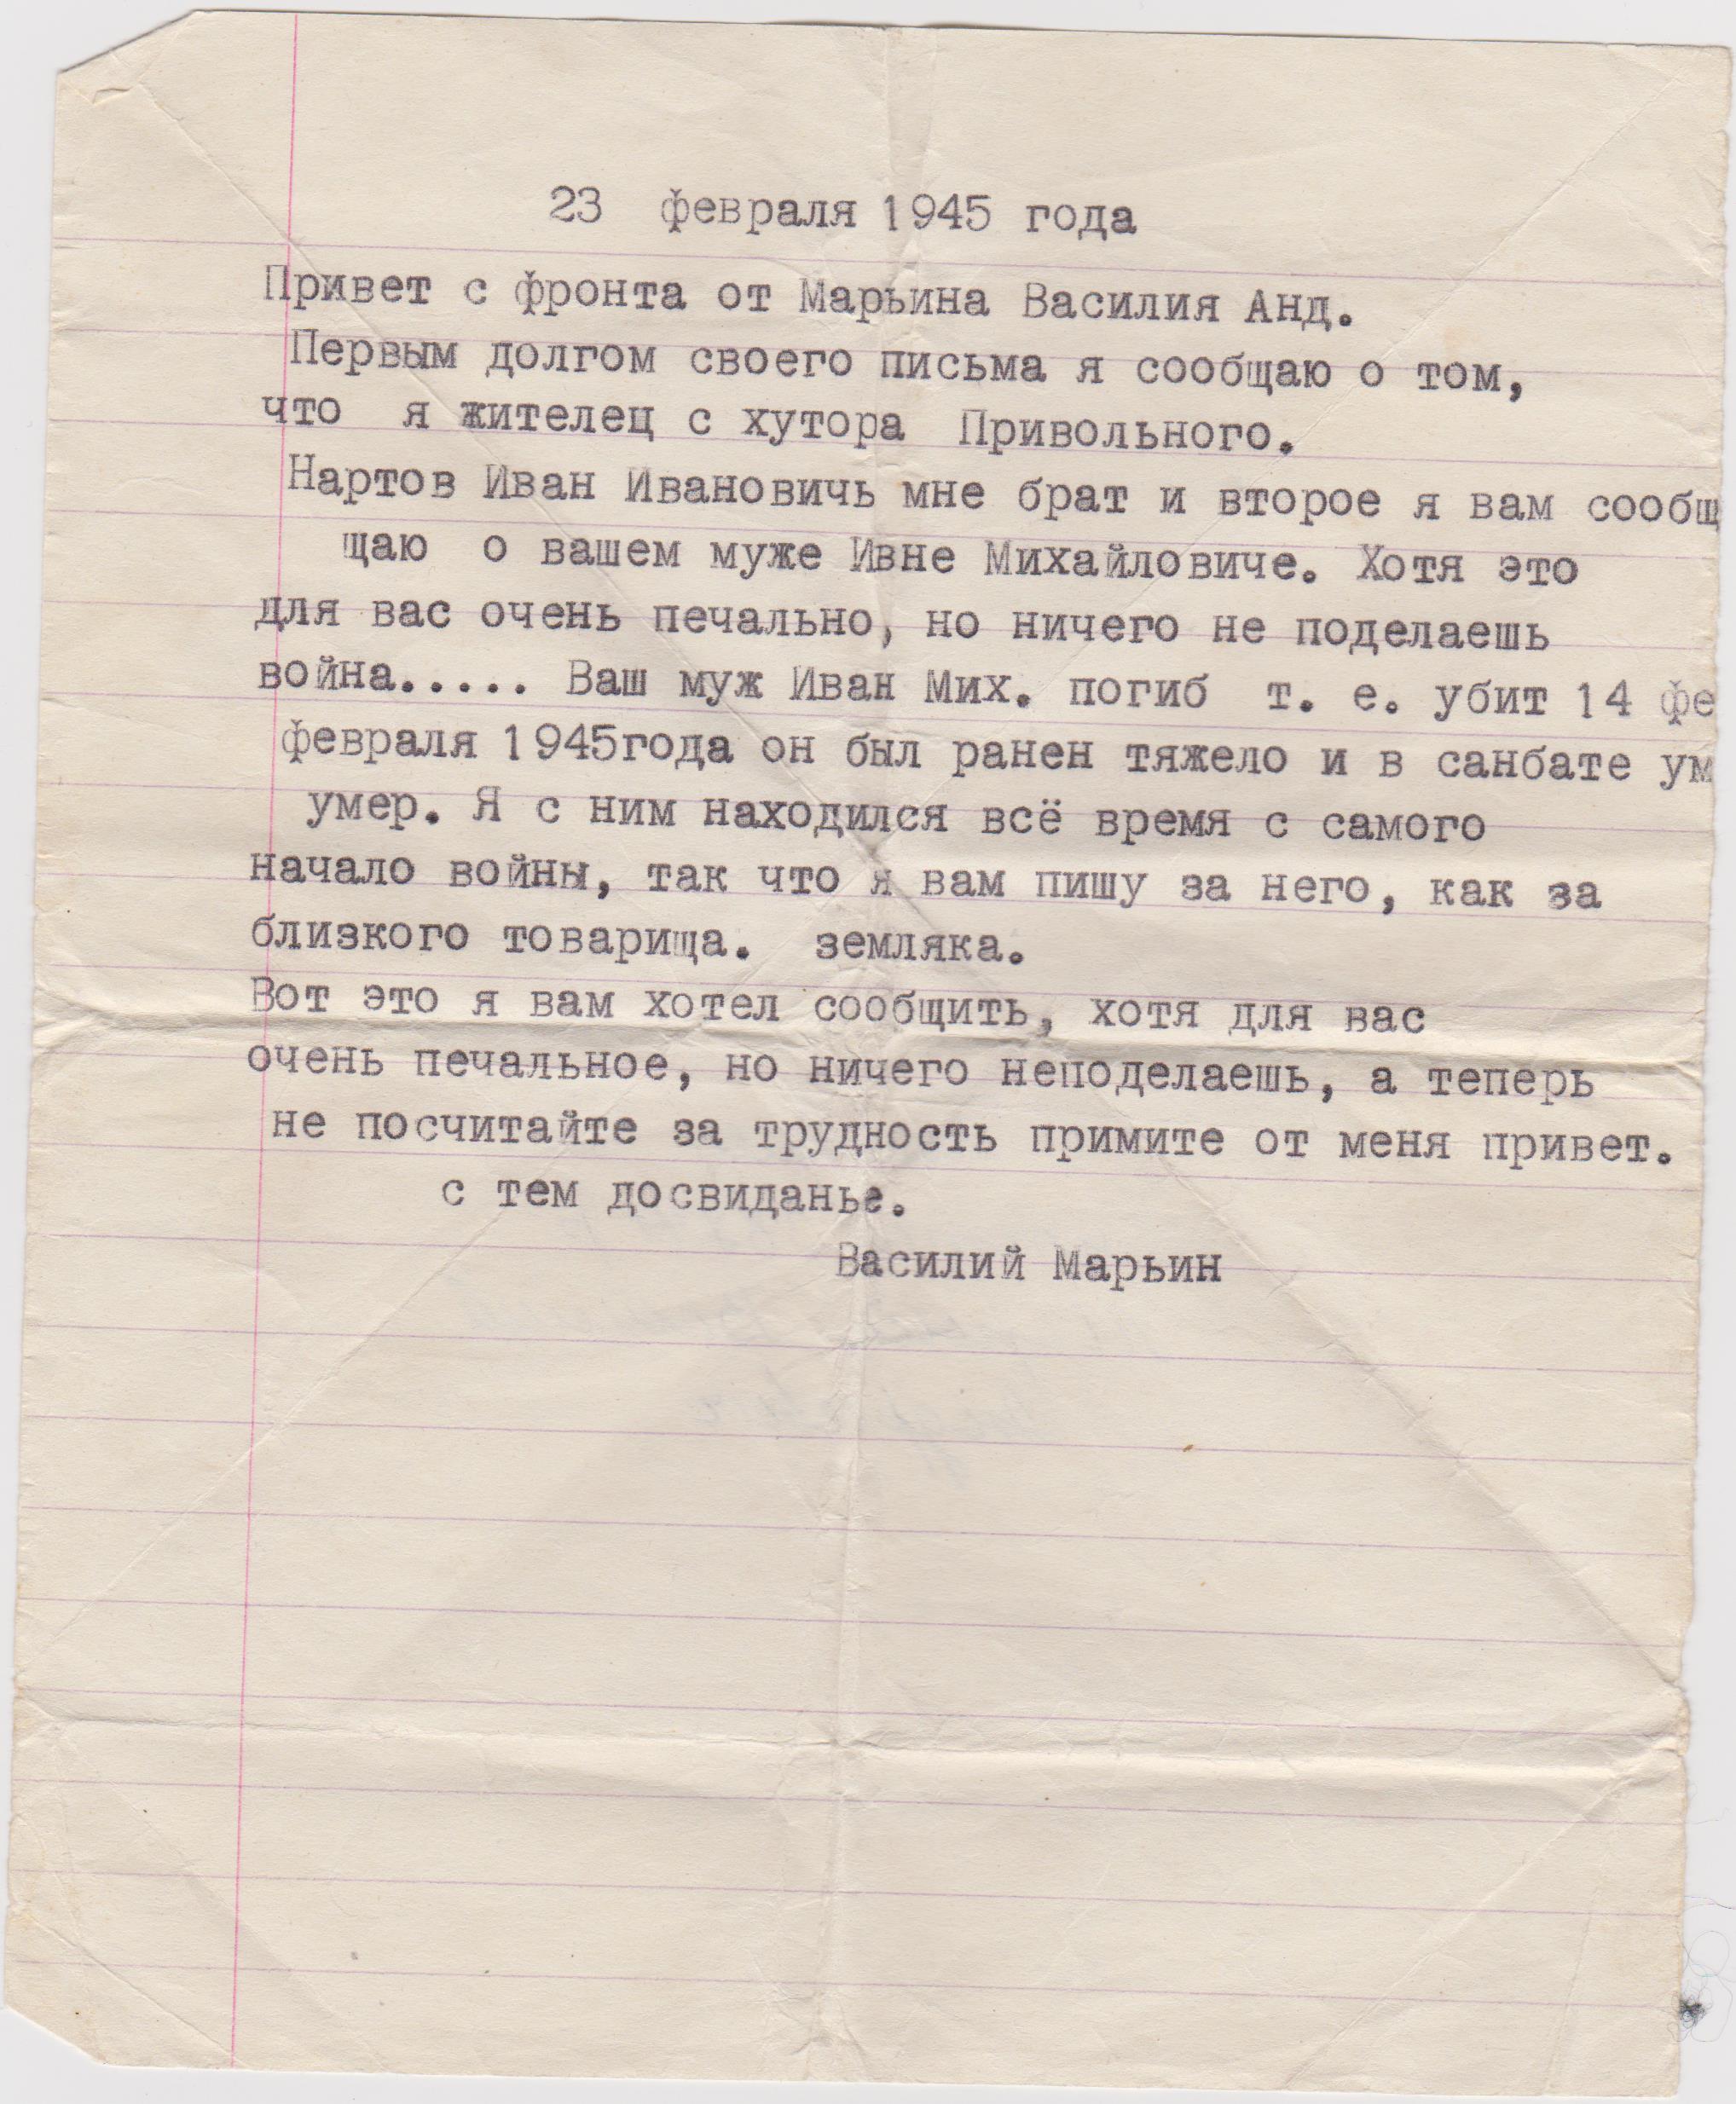 23 февраля 1945 года
Привет с фронта от Марьина Василия Анд.
Первым долгом своего письма я сообщаю о том,
что я жителец с хутора Привольного.
Нартов Иван Ивановичь мне брат и второе я вам сообщ
щаю о вашем муже Ивне Михайловиче. Хотя это
для вас очень печально, но ничего не поделаешь
война..... Ваш муж Иван Мих. погиб т. е. убит 14 фе
февраля 1945года он был ранен тяжело и в санбате ум
умер. Я с ним находился всё время с самого
начало войны, так что я вам пишу за него, как за
близкого товарища. земляка.
Вот это я вам хотел сообщить, хотя для вас
очень печальное, но ничего неподелаешь, а теперь
не посчитайте за трудность примите от меня привет.
с тем досвиданье.
Василий Марьин